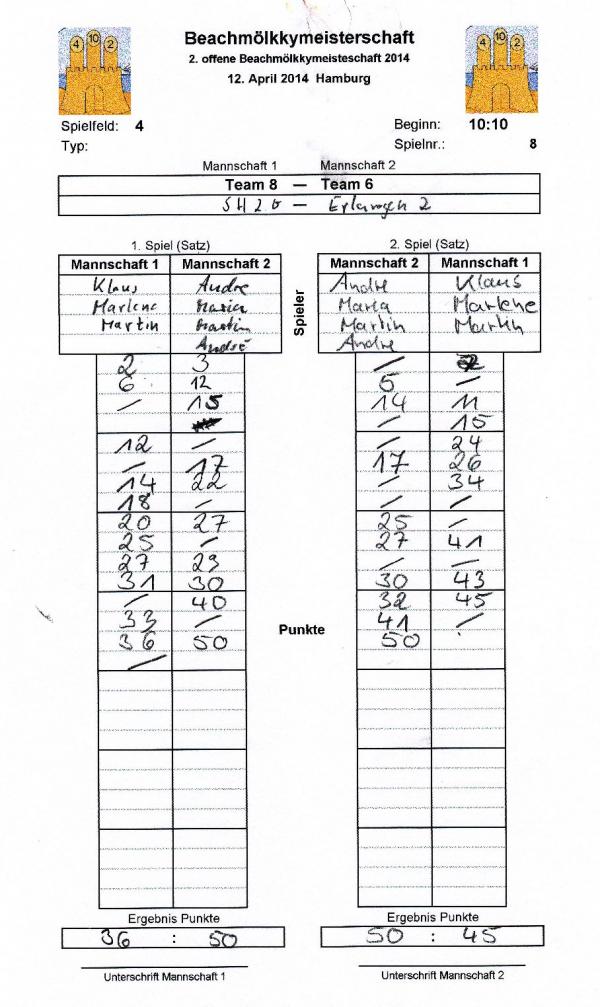 4 10 2
4 10 2
Beachmölkkymeisterschaft
2. offene Beachmölkkymeisteschaft 2014
12. April 2014 Hamburg
Spielfeld: 4
Beginn: 10:10
Typ:
Spielnr.: 8
Mannschaft 1 Mannschaft 2
Team 8 — Team 6
SH2G — Erlangen 2
1. Spiel (Satz)
2. Spiel (Satz)
Mannschaft 1 Mannschaft 2
Mannschaft 2 Mannschaft 1
Klaus Andre
Andre Klaus
Marlene Maria
Maria Marlene
Martin Martin
Martin Martin
André
Andre
Spieler
2 3 /
6 12 5 /
/ 15 14 11
/ 15
12 / / 24
/ 17 17 26
14 22 / 34
18 / / /
20 27 25 /
25 / 27 41
27 29 / /
31 30 30 43
/ 40 32 45
33 / 41 /
36 50 50
/
Punkte
Ergebnis Punkte
Ergebnis Punkte
36 : 50
50 : 45
Unterschrift Mannschaft 1
Unterschrift Mannschaft 2